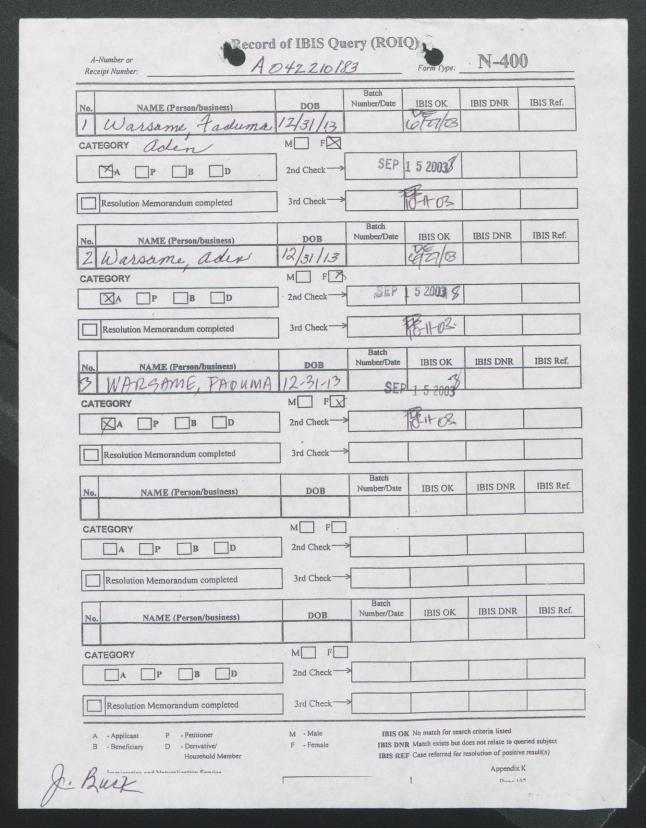 Record of IBIS Query (ROIQ)
A-Number or
Receipt Number: A042210183 Form Type: N-400
No. NAME (Person/business) DOB Batch Number/Date IBIS OK IBIS DNR IBIS Ref.
1 Warsame, Faduma 12/31/13 6/27/03
CATEGORY Aden M F
A P B D 2nd Check SEP 15 2003
Resolution Memorandum completed 3rd Check 10-11-03
No. NAME (Person/business) DOB Batch Number/Date IBIS OK IBIS DNR IBIS Ref.
2 Warsame, Aden 12/31/13 6/27/03
CATEGORY M F
A P B D 2nd Check SEP 15 2003
Resolution Memorandum completed 3rd Check 10-11-03
No. NAME (Person/business) DOB Batch Number/Date IBIS OK IBIS DNR IBIS Ref.
3 WARSAME, FADUMA 12-31-13 SEP 15 2003
CATEGORY M F
A P B D 2nd Check 10-11-03
Resolution Memorandum completed 3rd Check
No. NAME (Person/business) DOB Batch Number/Date IBIS OK IBIS DNR IBIS Ref.
CATEGORY M F
A P B D 2nd Check
Resolution Memorandum completed 3rd Check
No. NAME (Person/business) DOB Batch Number/Date IBIS OK IBIS DNR IBIS Ref.
CATEGORY M F
A P B D 2nd Check
Resolution Memorandum completed 3rd Check
A - Applicant P - Petitioner M - Male IBIS OK No match for search criteria listed
B - Beneficiary D - Derivative/ F - Female IBIS DNR Match exists but does not relate to queried subject
Household Member IBIS REF Case referred for resolution of positive result(s)
Immigration and Naturalization Service Appendix K
J. Buck